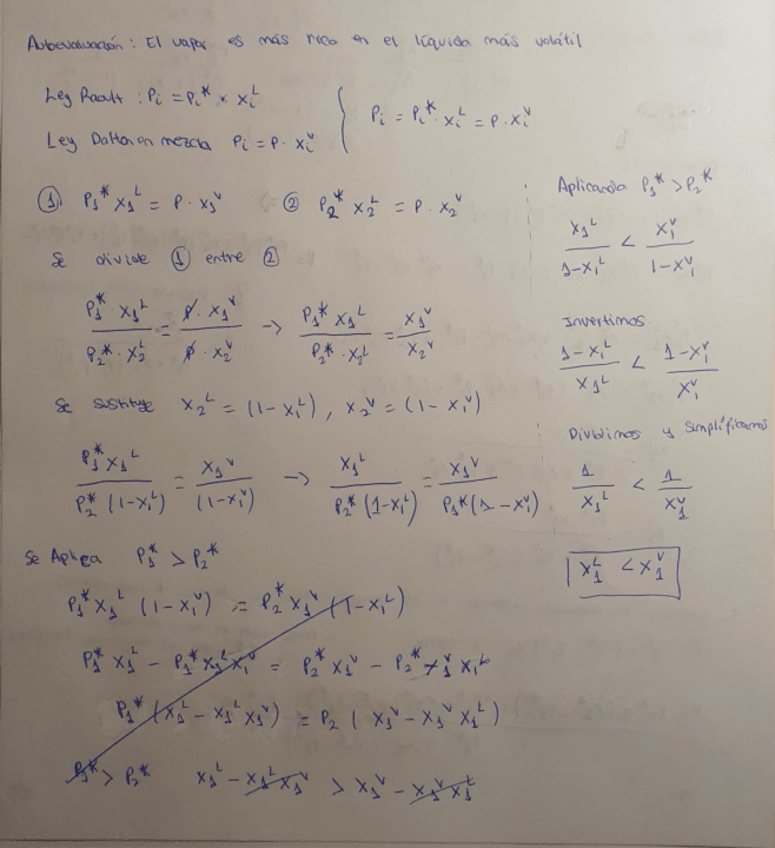 Autoevaluación: El vapor es más rico en el líquido más volátil
Ley Raoult : Pi = Pi* × xiᴸ
Ley Dalton en mezcla Pi = P · xiⱽ
Pi = Pi* · xiᴸ = P · xiⱽ
① P1* x1ᴸ = P · x1ⱽ ② P2* x2ᴸ = P · x2ⱽ
Se divide ① entre ②
P1* · x1ᴸ / P2* · x2ᴸ = P · x1ⱽ / P · x2ⱽ → P1* x1ᴸ / P2* · x2ᴸ = x1ⱽ / x2ⱽ
Se sustituye x2ᴸ = (1 - x1ᴸ), x2ⱽ = (1 - x1ⱽ)
P1* x1ᴸ / P2* (1 - x1ᴸ) = x1ⱽ / (1 - x1ⱽ) → x1ᴸ / P2* (1 - x1ᴸ) = x1ⱽ / P1* (1 - x1ⱽ)
Se Aplica P1* > P2*
P1* x1ᴸ (1 - x1ⱽ) = P2* x1ⱽ (1 - x1ᴸ)
P1* x1ᴸ - P1* x1ᴸ x1ⱽ = P2* x1ⱽ - P2* x1ⱽ x1ᴸ
P1* (x1ᴸ - x1ᴸ x1ⱽ) = P2 (x1ⱽ - x1ⱽ x1ᴸ)
P1* > P2* x1ᴸ - x1ᴸ x1ⱽ > x1ⱽ - x1ⱽ x1ᴸ
Aplicando P1* > P2*
x1ᴸ / 1 - x1ᴸ < x1ⱽ / 1 - x1ⱽ
Invertimos
1 - x1ᴸ / x1ᴸ < 1 - x1ⱽ / x1ⱽ
Dividimos y simplificamos
1 / x1ᴸ < 1 / x1ⱽ
x1ᴸ < x1ⱽ